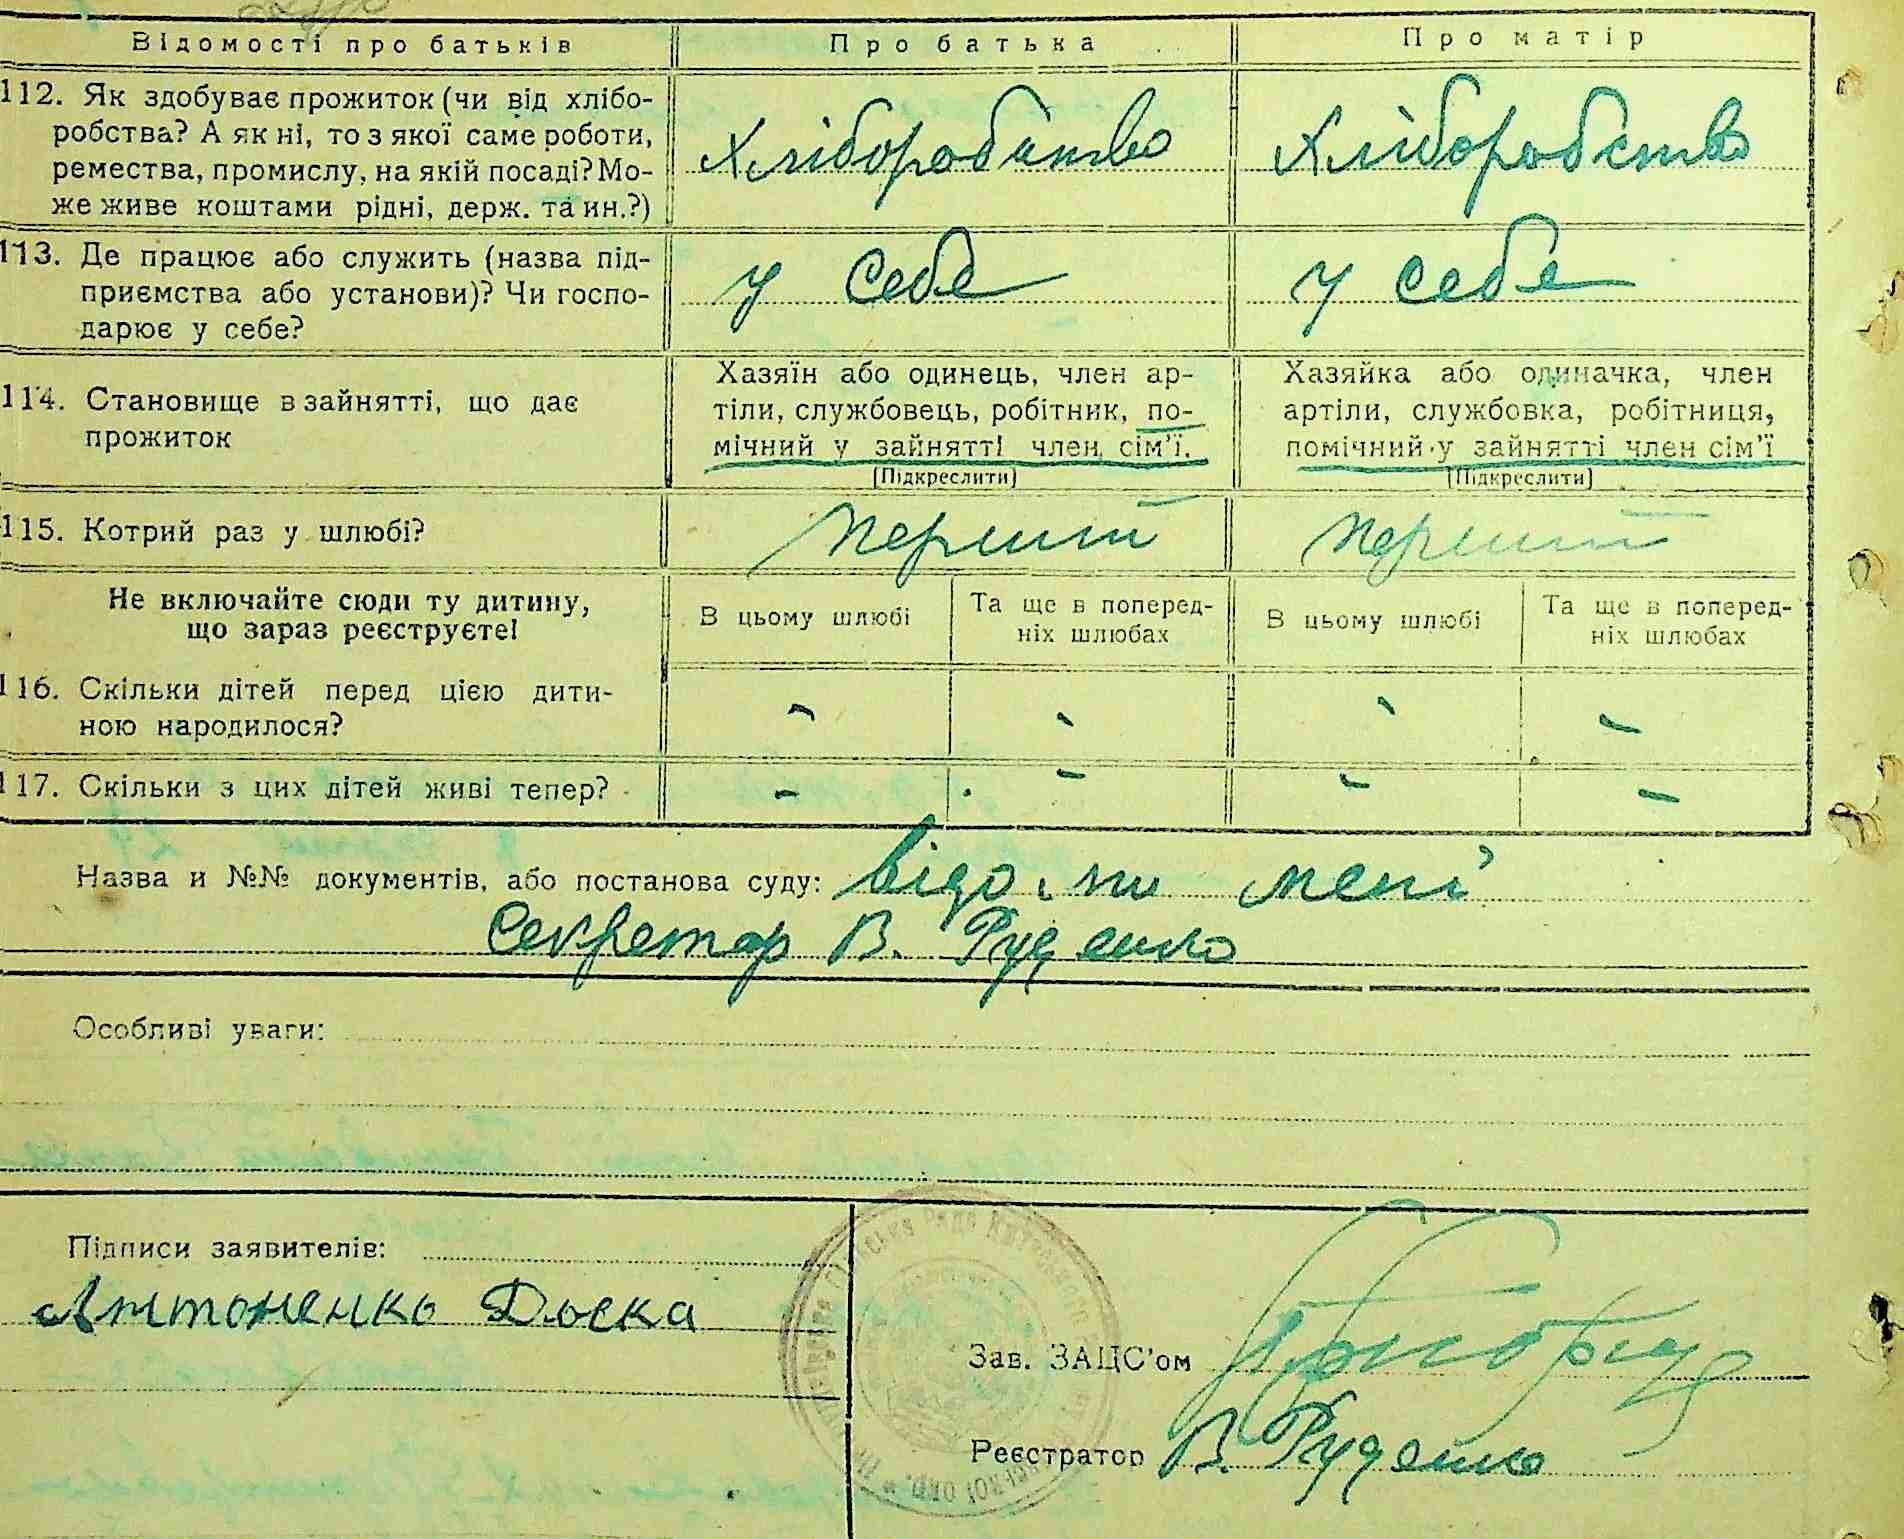 Відомості про батьків
Про батька
Про матір
112. Як здобуває прожиток (чи від хлібо-
робства? А як ні, то з якої саме роботи,
ремества, промислу, на якій посаді? Мо-
же живе коштами рідні, держ. та ин.?)
Хліборобство
Хліборобство
113. Де працює або служить (назва під-
приємства або установи)? Чи госпо-
дарює у себе?
у себе
у себе
114. Становище в зайнятті, що дає
прожиток
Хазяїн або одинець, член ар-
тіли, службовець, робітник, по-
мічний у зайнятті член сім'ї.
(Підкреслити)
Хазяйка або одиначка, член
артіли, службовка, робітниця,
помічний у зайнятті член сім'ї
(Підкреслити)
115. Котрий раз у шлюбі?
перший
перший
Не включайте сюди ту дитину,
що зараз реєструєте!
В цьому шлюбі
Та ще в поперед-
ніх шлюбах
В цьому шлюбі
Та ще в поперед-
ніх шлюбах
116. Скільки дітей перед цією дити-
ною народилося?
- - - -
117. Скільки з цих дітей живі тепер?
- - - -
Назва и №№ документів, або постанова суду: відомі мені
Секретар В. Руденко
Особливі уваги:
Підписи заявителів:
Антоненко
Зав. ЗАЦС'ом
Реєстратор В. Руденко